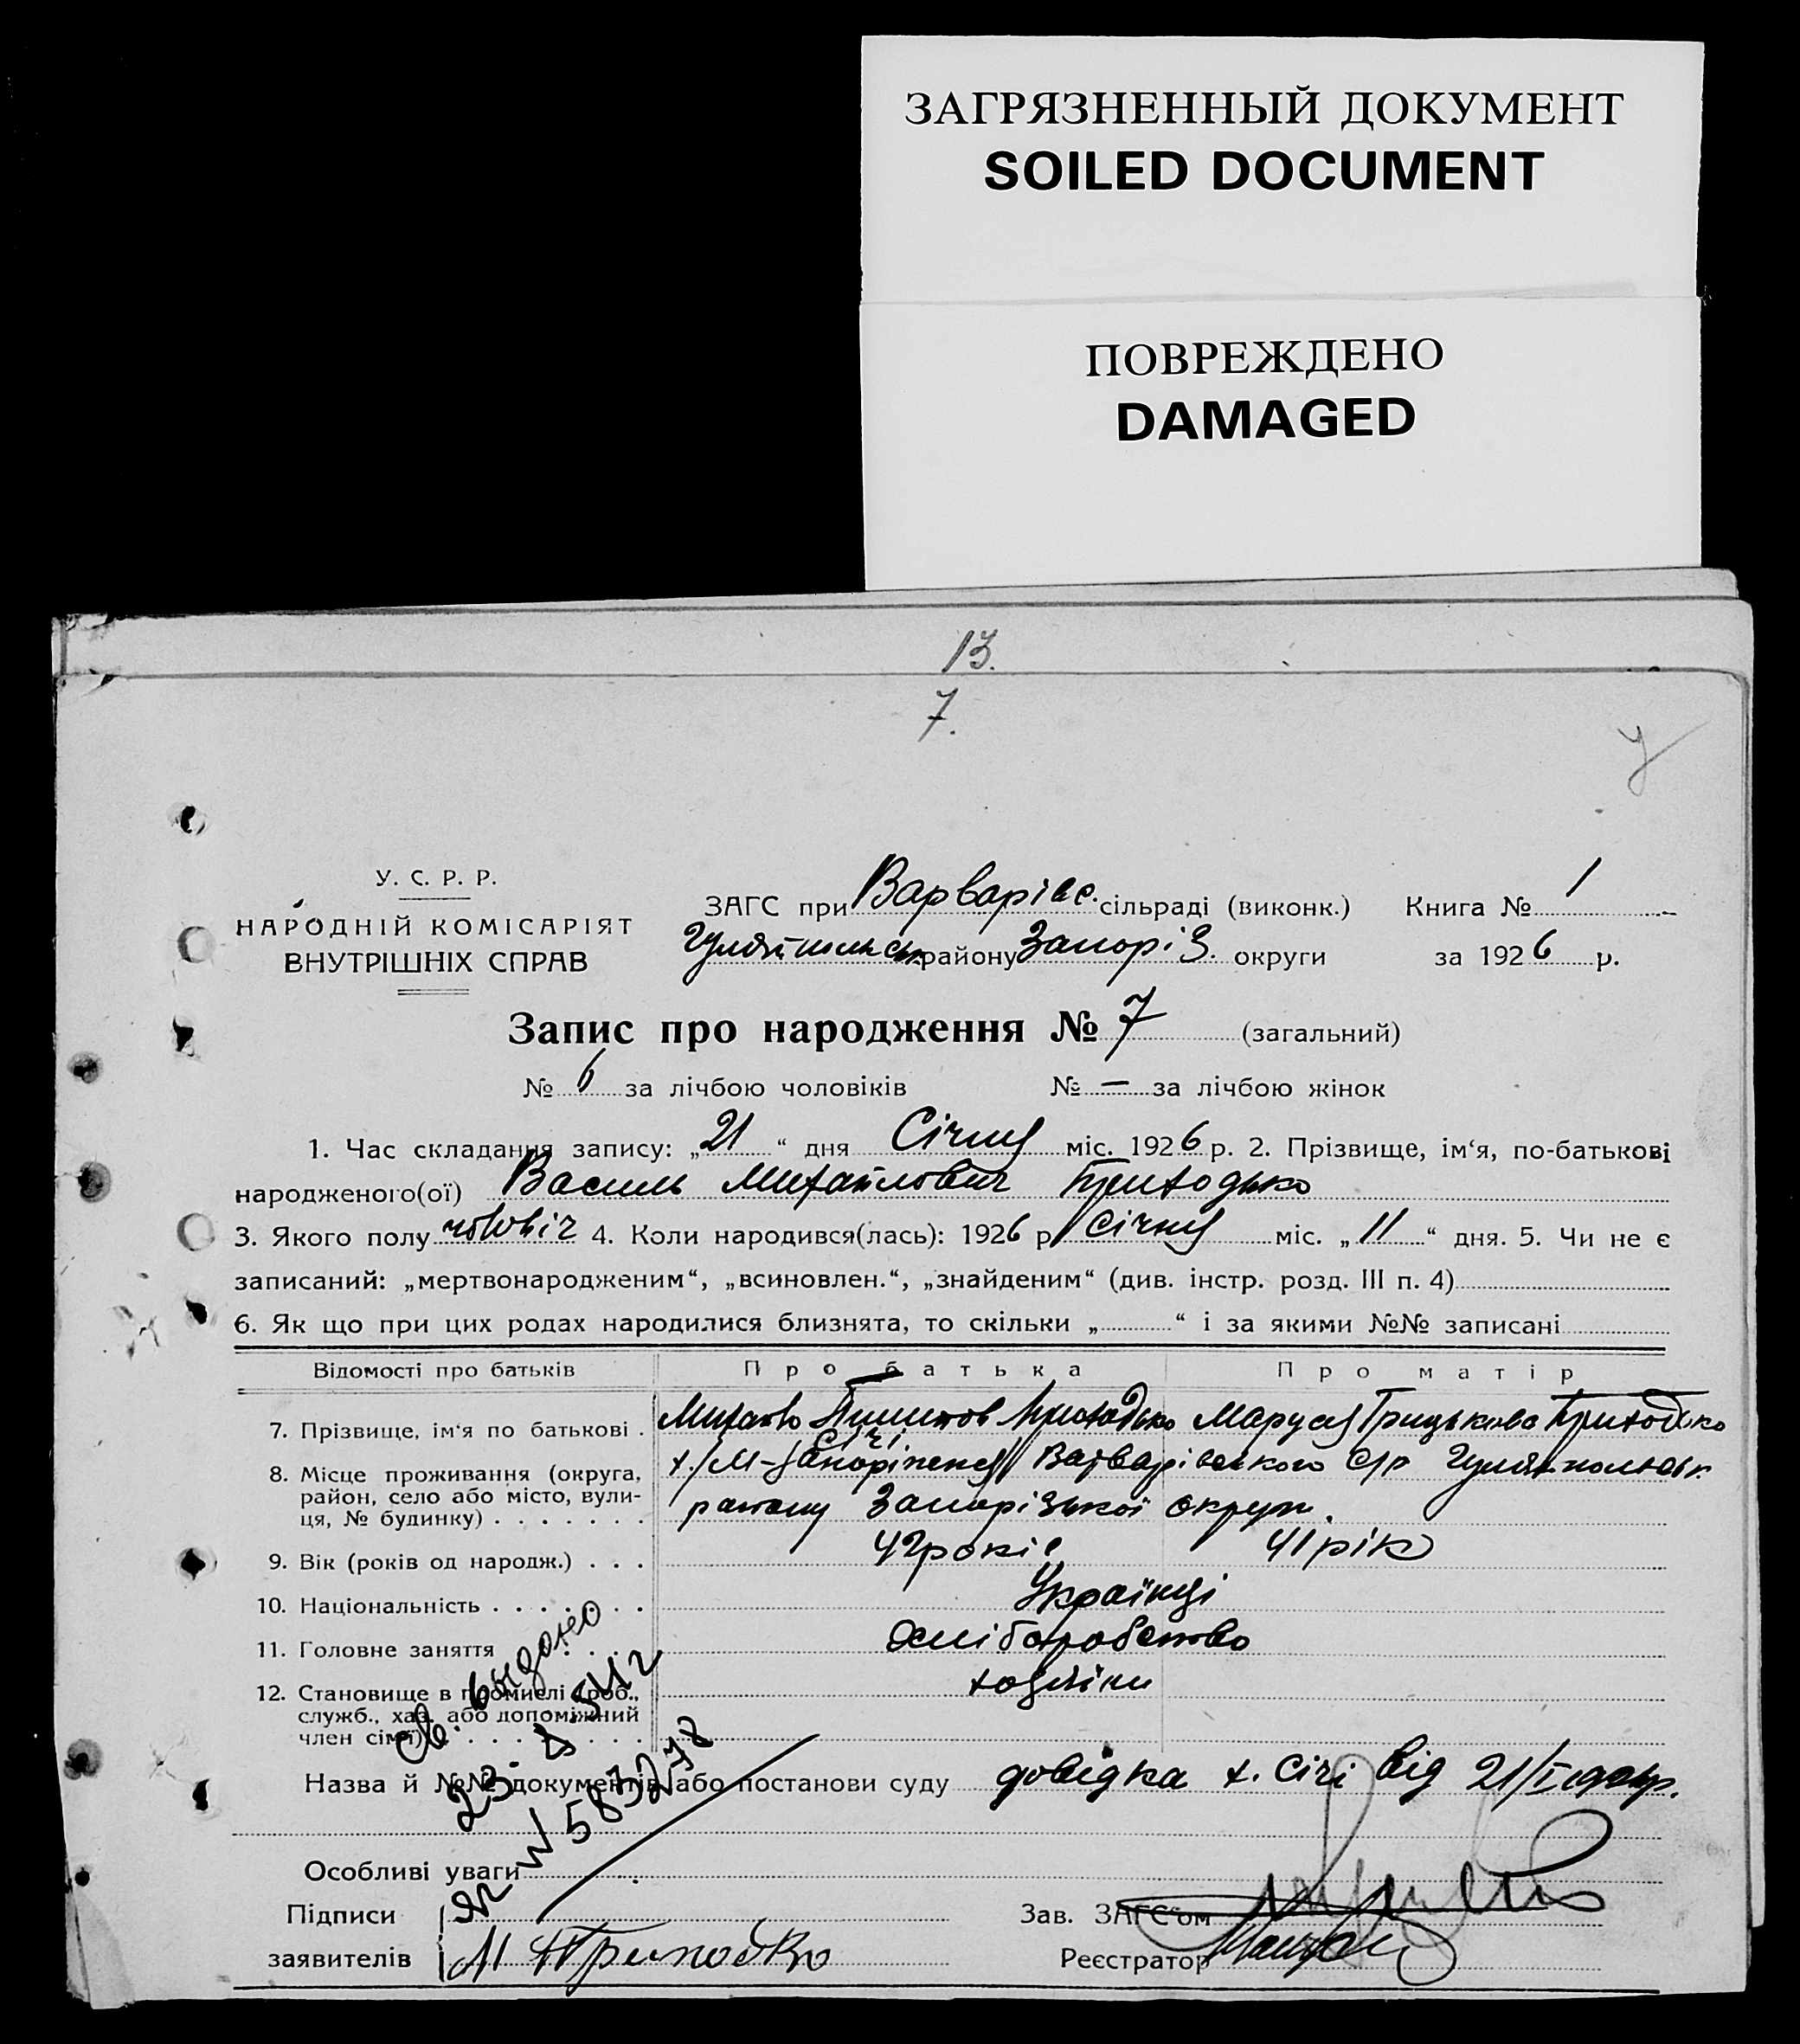 ЗАГРЯЗНЕННЫЙ ДОКУМЕНТ
SOILED DOCUMENT
ПОВРЕЖДЕНО
DAMAGED
13.
7.
У. С. Р. Р.
НАРОДНІЙ КОМІСАРІЯТ
ВНУТРІШНІХ СПРАВ
ЗАГС при Варварівс. сільраді (виконк.) Книга № 1
Гуляйпільськ району Запоріз. округи за 1926 р.
Запис про народження № 7 (загальний)
№ 6 за лічбою чоловіків № — за лічбою жінок
1. Час складання запису: „21“ дня Січня міс. 1926 р. 2. Прізвище, ім‘я, по-батькові
народженого(ої) Василь Михайлович Приходько
3. Якого полу чоловіч 4. Коли народився(лась): 1926 р Січня міс. „11“ дня. 5. Чи не є
записаний: „мертвонародженим“, „всиновлен.“, „знайденим“ (див. інстр. розд. III п. 4)
6. Як що при цих родах народилися близнята, то скільки „ “ і за якими №№ записані
Відомості про батьків Про батька Про матір
7. Прізвище, ім‘я по батькові . Михайло Приходько Маруся Грицькова Приходько
8. Місце проживання (округа, район, село або місто, вулиця, № будинку) х. Січі Варварівського с/р Гуляйпольськ
району Запорізької округи.
9. Вік (років од народж.) . . . 42 років 41 рік
10. Національність . . . . . . . Українці
11. Головне заняття . . . . . . Хліборобство
12. Становище в промислі (роб., служб., хаз. або допоміжний член сім‘ї) . . . . . . . хазяїни
Св. выдано
23. 5.51г
ЯГ № 5873278
Назва й №№ документів або постанови суду довідка х. Січі від 21/I
Особливі уваги
Підписи
заявителів М Приходко
Зав. ЗАГС‘ом
Реєстратор